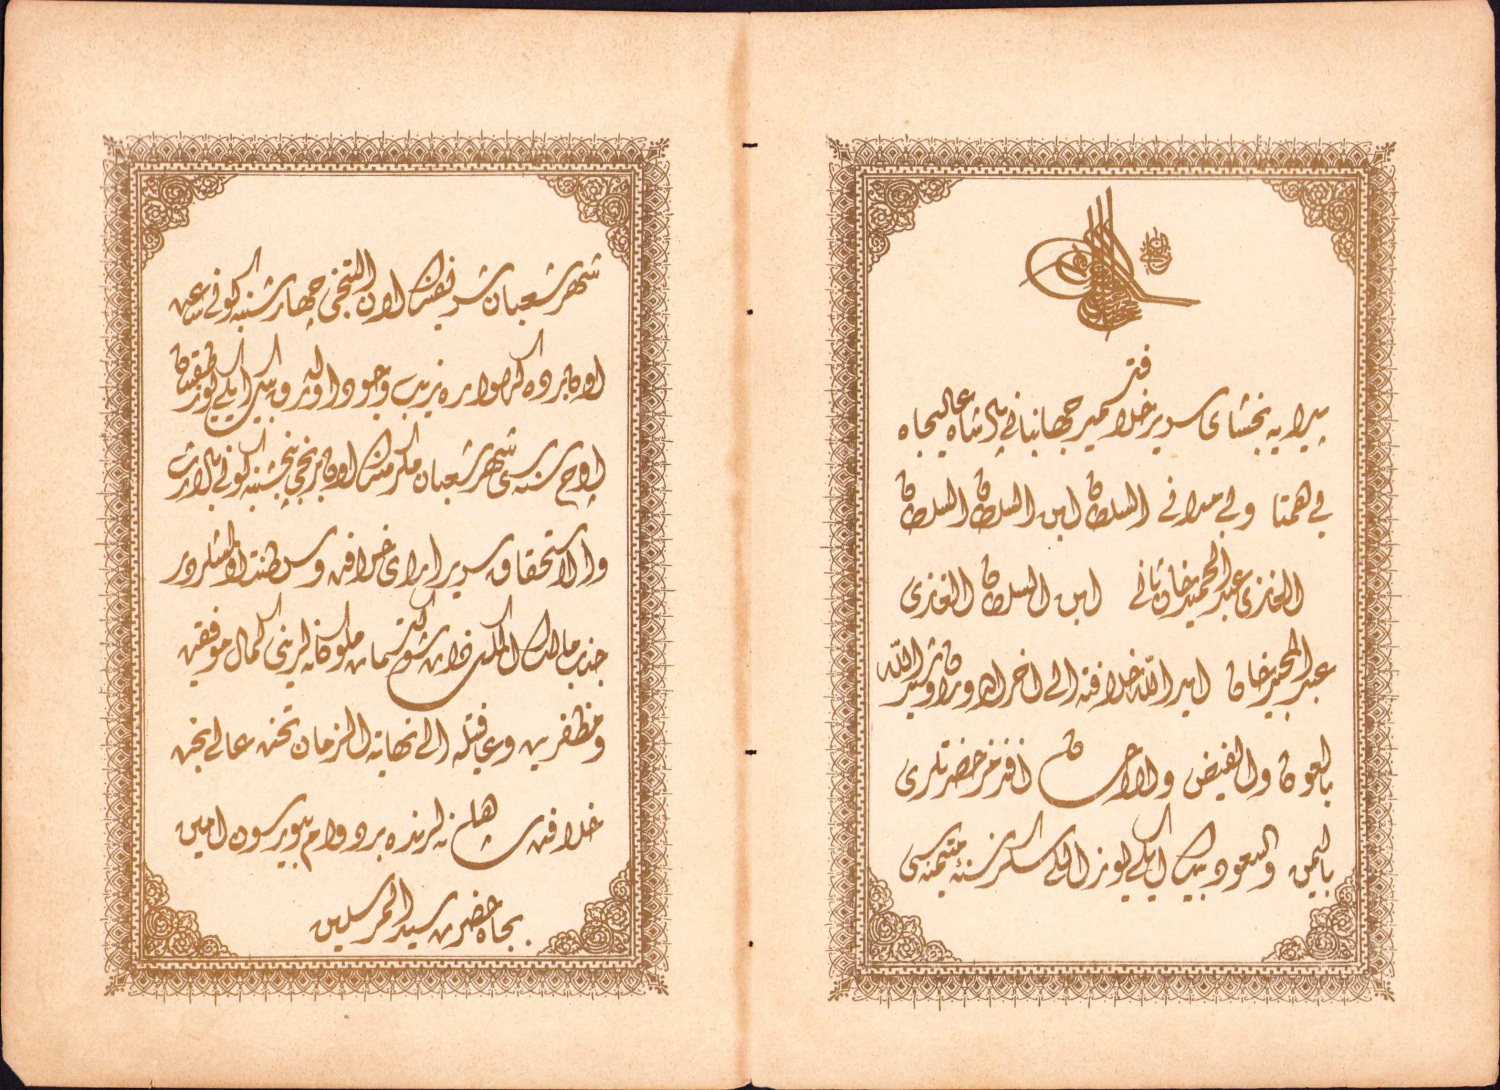 پیرایه بخشای سریر خلافت مسیر جهانبانی پادشاه عالیجاه
بی همتا و بی مدانی السلطان ابن السلطان السلطان
الغازی عبد الحمید خان ثانی ابن السلطان الغازی
عبد المجید خان اید الله خلافته الی اخر الدوران وشید الله
بالعون والفیض والاحسان افندمز حضرتلری
بالیمن والسعود بیك ایکیوز اللی سکز سنهٔ متیمنه سی
شهر شعبان شریفنك اون التنجی چهارشنبه کونی ساعت
اون برده کهواره زیب وجود اولوب وبیك ایکیوز طقسان
اوچ سنه سی شهر شعبان مکرمنك اون برنجی پنجشنبه کونی بالارث
والاستحقاق سریر ارای خلافت وسلطنت اولمشلردر
جناب مالك الملك ذات شوکتسمات ملوکانه لرینی کمال موفقیت
ومظفریت وعافیتله الی نهایة الزمان تخت عالی بخت
خلافت شاهانه لرنده بردوام بیورسون امین
بجاه حضرت سید المرسلین